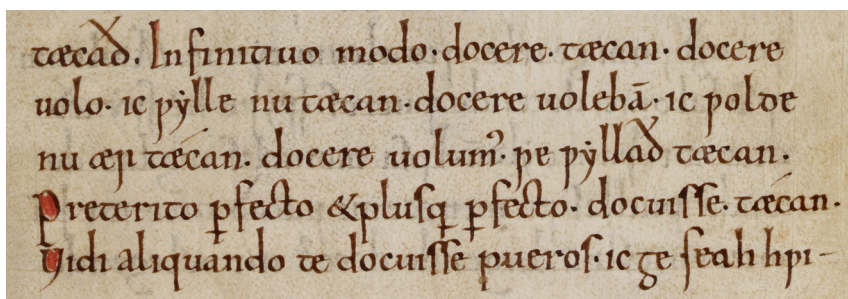 tæcað. Infinitiuo modo· docere· tæcan· docere
uolo· ic ƿẏlle nu tæcan· docere uolebā· ic ƿolde
nu ær tǽcan. docere uolum᷒· ƿe ƿẏllað tæcan.
Preterito ꝑfecto &plusq̨ ꝑfecto· docuisse· tǽcan.
Vidi aliquando te docuisse pueros· ic ge seah hƿi-